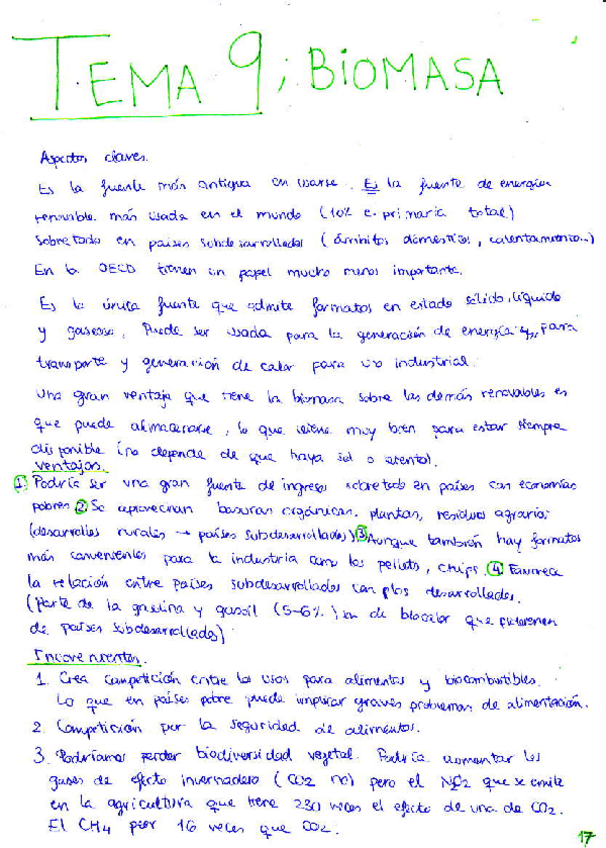 TEMA 9; BIOMASA
Aspectos claves.
Es la fuente más antigua en usarse. Es la fuente de energía
renovable más usada en el mundo (10% e. primaria total)
sobretodo en países subdesarrollados (ámbitos domésticos, calentamiento...)
En la OECD tienen un papel mucho menos importante.
Es la única fuente que admite formatos en estado sólido, líquido
y gaseoso. Puede ser usada para la generación de energía y, para
transporte y generación de calor para uso industrial.
Una gran ventaja que tiene la biomasa sobre las demás renovables es
que puede almacenarse, lo que viene muy bien para estar siempre
disponible (no depende de que haya sol o viento).
Ventajas.
1 Podría ser una gran fuente de ingresos sobretodo en países con economías
pobres 2 Se aprovechan basuras orgánicas, plantas, residuos agrarios
(desarrollos rurales → países subdesarrollados) 3 Aunque también hay formatos
más convenientes para la industria como los pellets, chips. 4 Favorece
la relación entre países subdesarrollados con los desarrollados.
(Parte de la gasolina y gasoil (5-6%) son de que
de países subdesarrollados)
Inconvenientes.
1. Crea competición entre los usos para alimentos y biocombustibles.
Lo que en países pobre puede implicar graves problemas de alimentación.
2. Competición por la seguridad de alimentos.
3. Podríamos perder biodiversidad vegetal. Podría aumentar los
gases de efecto invernadero (CO2 no) pero el NO2 que se emite
en la agricultura que tiene 280 veces el efecto de una de CO2.
El CH4 peor 16 veces que CO2.
17